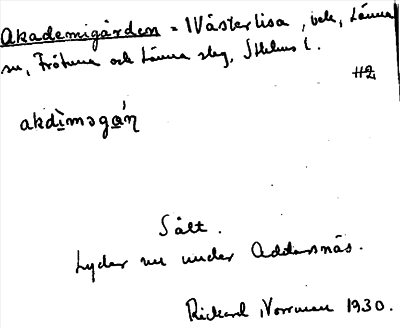 Akademigården = Västerlisa, i sk, Länna
sn, Frötuna och Länna slg, Sthlms l.
#2
akdìməgán
Sält.
Lyder nu under Addarsnäs.
Rickard Norrman 1930.